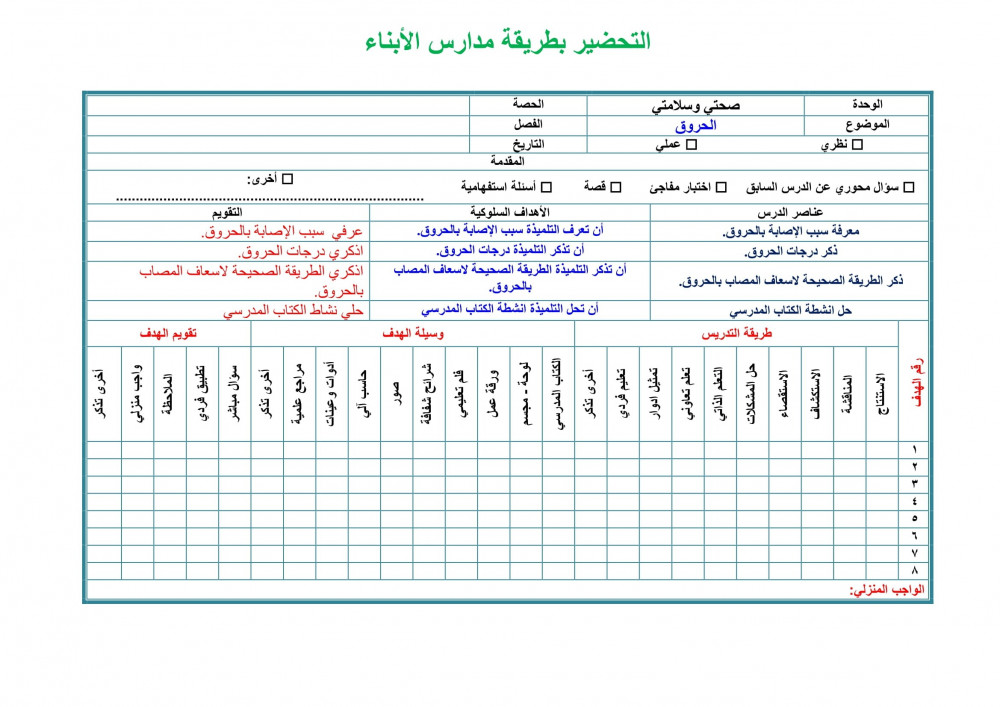 التحضير بطريقة مدارس الأبناء
الوحدة صحتي وسلامتي الحصة
الموضوع الحروق الفصل
□ نظري □ عملي التاريخ
المقدمة
□ سؤال محوري عن الدرس السابق □ اختبار مفاجئ □ قصة □ أسئلة استفهامية □ أخرى:
................................................................
عناصر الدرس الأهداف السلوكية التقويم
معرفة سبب الإصابة بالحروق. أن تعرف التلميذة سبب الإصابة بالحروق. عرفي سبب الإصابة بالحروق.
ذكر درجات الحروق. أن تذكر التلميذة درجات الحروق. اذكري درجات الحروق.
ذكر الطريقة الصحيحة لاسعاف المصاب بالحروق. أن تذكر التلميذة الطريقة الصحيحة لاسعاف المصاب بالحروق. اذكري الطريقة الصحيحة لاسعاف المصاب بالحروق.
حل انشطة الكتاب المدرسي أن تحل التلميذة انشطة الكتاب المدرسي حلي نشاط الكتاب المدرسي
رقم الهدف طريقة التدريس وسيلة الهدف تقويم الهدف
الاستنتاج المناقشة الاستكشاف الاستقصاء حل المشكلات التعلم الذاتي تعلم تعاوني تمثيل ادوار تعليم فردي أخرى تذكر الكتاب المدرسي لوحة - مجسم ورقة عمل فلم تعليمي شرائح شفافة صور حاسب آلي أدوات وعينات مراجع علمية أخرى تذكر سؤال مباشر تطبيق فردي الملاحظة واجب منزلي أخرى تذكر
١
٢
٣
٤
٥
٦
٧
٨
الواجب المنزلي: